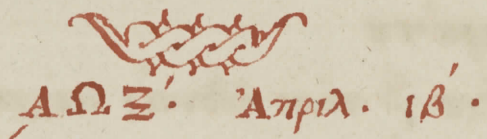 ͵ΑΩΞʹ. Ἀπριλ. ιβʹ.